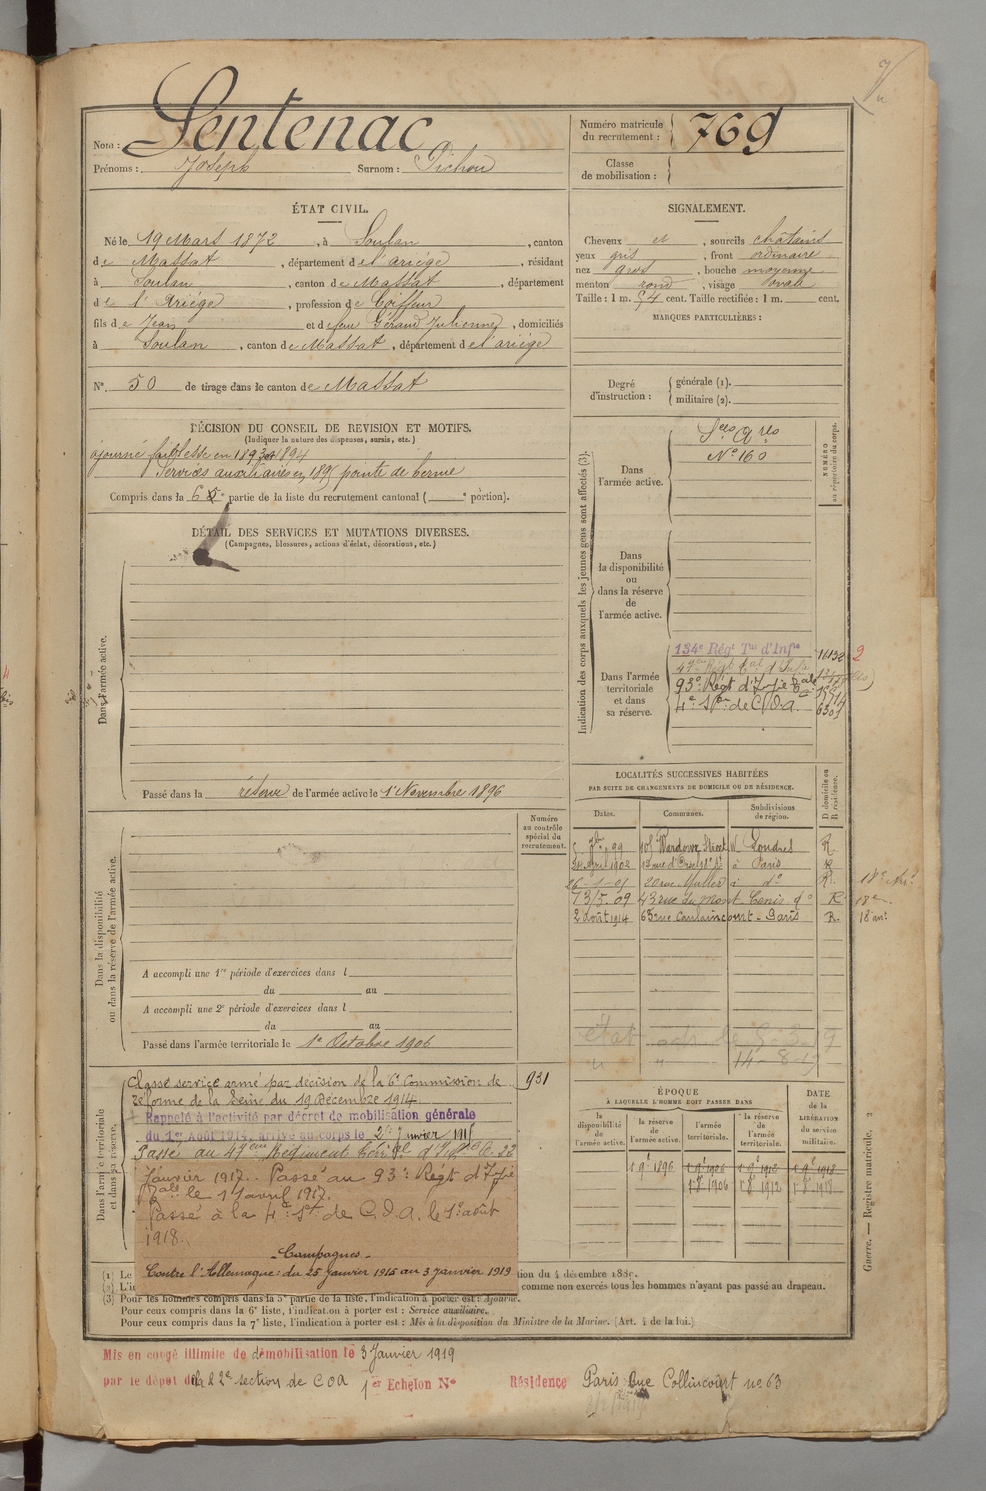 Nom : Sentenac
Prénoms : Joseph Surnom : Pichou
Numéro matricule du recrutement : 769
Classe de mobilisation :
ÉTAT CIVIL.
Né le 19 Mars 1872, à Soulan, canton
de Massat, département de l'ariége, résidant
à Soulan, canton de Massat, département
de l'Ariége, profession de Coiffeur
fils de Jean et de feue Géraud Julienne, domiciliés
à Soulan, canton de Massat, département de l'ariége
N° 50 de tirage dans le canton de Massat
SIGNALEMENT.
Cheveux et, sourcils châtains
yeux gris, front ordinaire
nez gros, bouche moyenne
menton rond, visage ovale
Taille : 1 m. 54 cent. Taille rectifiée : 1 m. cent.
MARQUES PARTICULIÈRES :
Degré d'instruction : générale (1).
militaire (2).
DÉCISION DU CONSEIL DE REVISION ET MOTIFS.
(Indiquer la nature des dispenses, sursis, etc.)
ajourné faiblesse en 1893 et 1894
Services auxiliaires en 1895 pointe de hernie
Compris dans la 6e partie de la liste du recrutement cantonal ( e portion).
DÉTAIL DES SERVICES ET MUTATIONS DIVERSES.
(Campagnes, blessures, actions d'éclat, décorations, etc.)
Dans l'armée active.
Passé dans la réserve de l'armée active le 1er Novembre 1896
Indication des corps auxquels les jeunes gens sont affectés (3).
NUMÉRO au répertoire du corps.
Dans l'armée active.
N° 160
Dans la disponibilité ou dans la réserve de l'armée active.
Dans l'armée territoriale et dans sa réserve.
134e Régt Tal d'Infie 2
93e Régt d'Infie Tale
4e Son de C.O.A.
LOCALITÉS SUCCESSIVES HABITÉES
PAR SUITE DE CHANGEMENTS DE DOMICILE OU DE RÉSIDENCE.
Dates. Communes. Subdivisions de région. D domicile ou R résidence.
99 Wardour Street W Londres R
Avril 1902 à Paris R
20 rue Muller à do R
13/5.09 43 rue du Mont Cenis do R
2 Août 1914 63 rue Caulaincourt - Paris R
Dans la disponibilité ou dans la réserve de l'armée active.
Numéro au contrôle spécial du recrutement.
A accompli une 1re période d'exercices dans l
du au
A accompli une 2e période d'exercices dans l
du au
Passé dans l'armée territoriale le 1er Octobre 1906
Dans l'armée territoriale et dans sa réserve.
Classé service armé par décision de la 6e Commission de 931
réforme de la Seine du 19 Décembre 1914
Rappelé à l'activité par décret de mobilisation générale
du 1er Août 1914, arrivé au corps le 25 Janvier 1915
Passé au 47ème Régiment Terrial d'Infie le 22
Janvier 1917. Passé au 93e Régt d'Infie
Tale le 11 avril 1917.
Passé à la 4e Son de C.O.A. le 1er août
1918.
Campagnes
Contre l'Allemagne : du 25 Janvier 1915 au 3 Janvier 1919
ÉPOQUE
À LAQUELLE L'HOMME DOIT PASSER DANS
la disponibilité de l'armée active. la réserve de l'armée active. l'armée territoriale. la réserve de l'armée territoriale. DATE de la LIBÉRATION du service militaire.
1 9e 1896 1 9e 1906 1 9e 1912 1 9e 1918
1 8e 1906 1 8e 1912 1 8e 1918
(1) Le tion du 4 décembre 1889.
(2) L'in comme non exercés tous les hommes n'ayant pas passé au drapeau.
(3) Pour les hommes compris dans la 5e partie de la liste, l'indication à porter est : Ajourné.
Pour ceux compris dans la 6e liste, l'indication à porter est : Service auxiliaire.
Pour ceux compris dans la 7e liste, l'indication à porter est : Mis à la disposition du Ministre de la Marine. (Art. 4 de la loi.)
Guerre. — Registre matricule. 2
Mis en congé illimité de démobilisation le 3 Janvier 1919
par le dépôt de la 22e section de COA 1er Echelon N° Résidence Paris rue Collincourt no 63